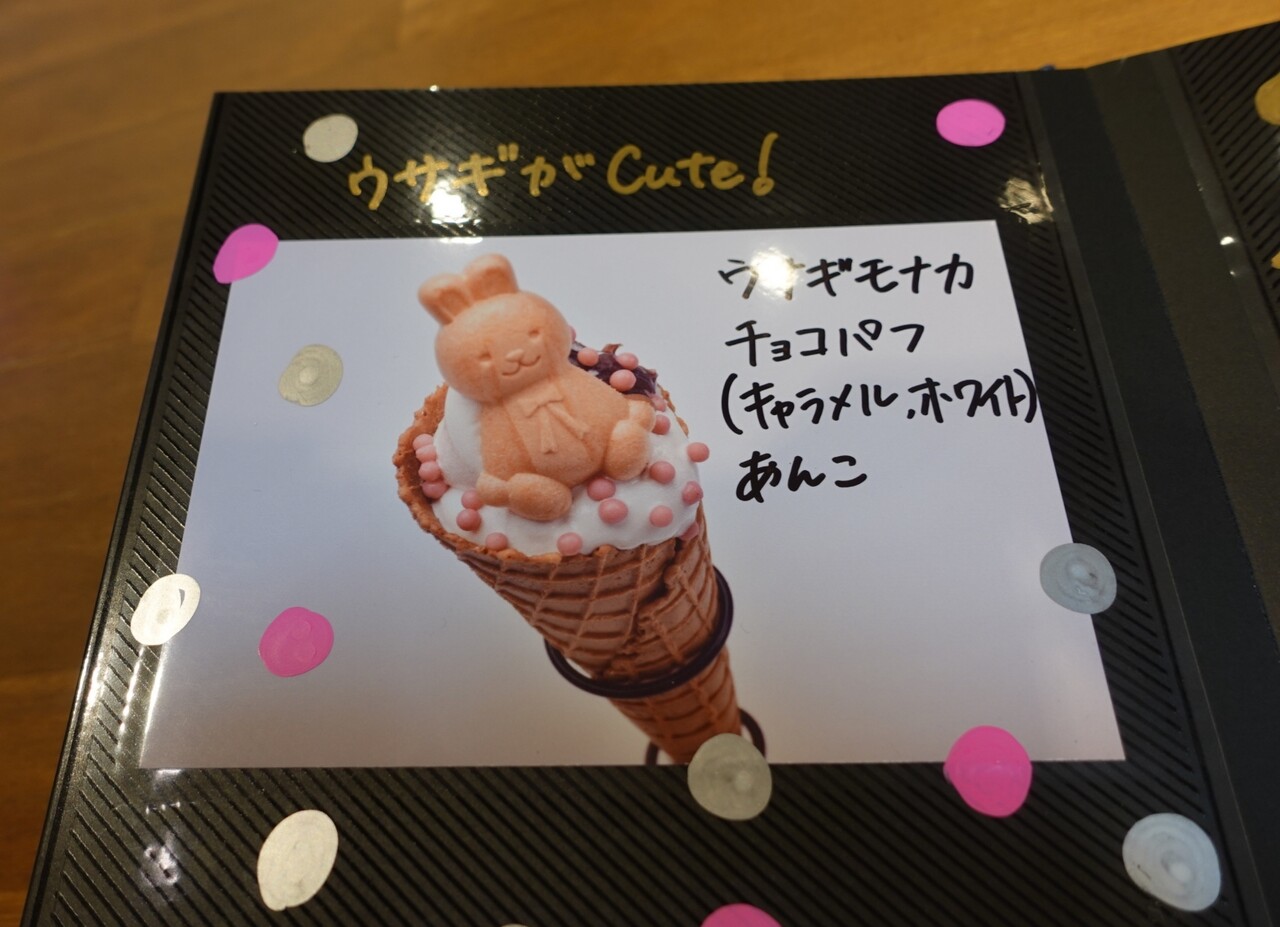 ウサギがCute!
ウサギモナカ
チョコパフ
(キャラメル,ホワイト)
あんこ